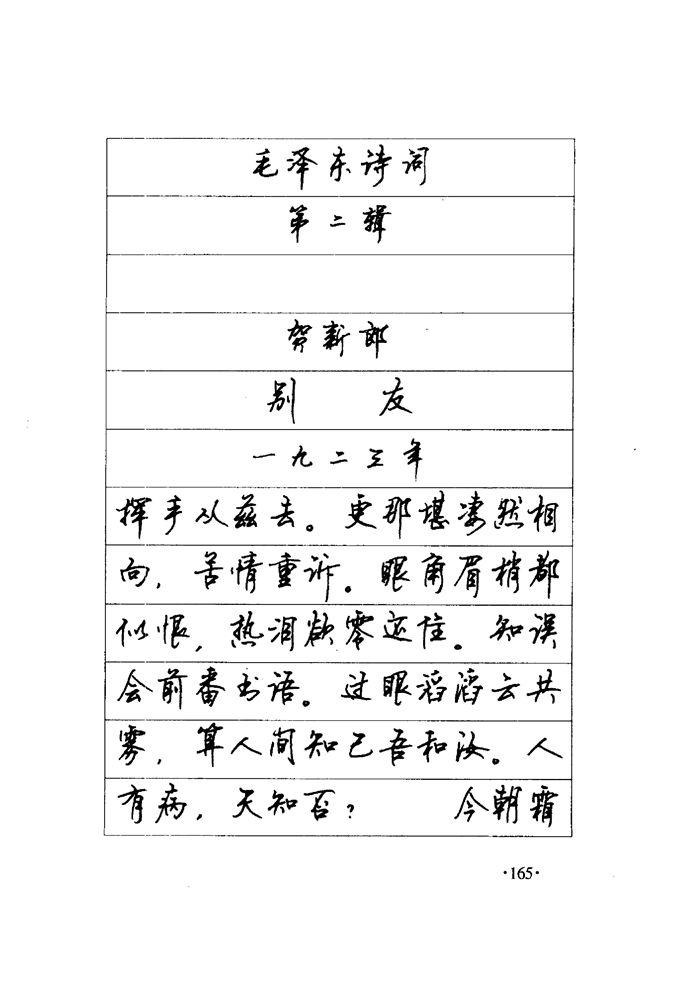 毛泽东诗词
第二辑
贺新郎
别 友
一九二三年
挥手从兹去。更那堪凄然相
向，苦情重诉。眼角眉梢都
似恨，热泪欲零还住。知误
会前番书语。过眼滔滔云共
雾，算人间知己吾和汝。人
有病，天知否？ 今朝霜
·165·